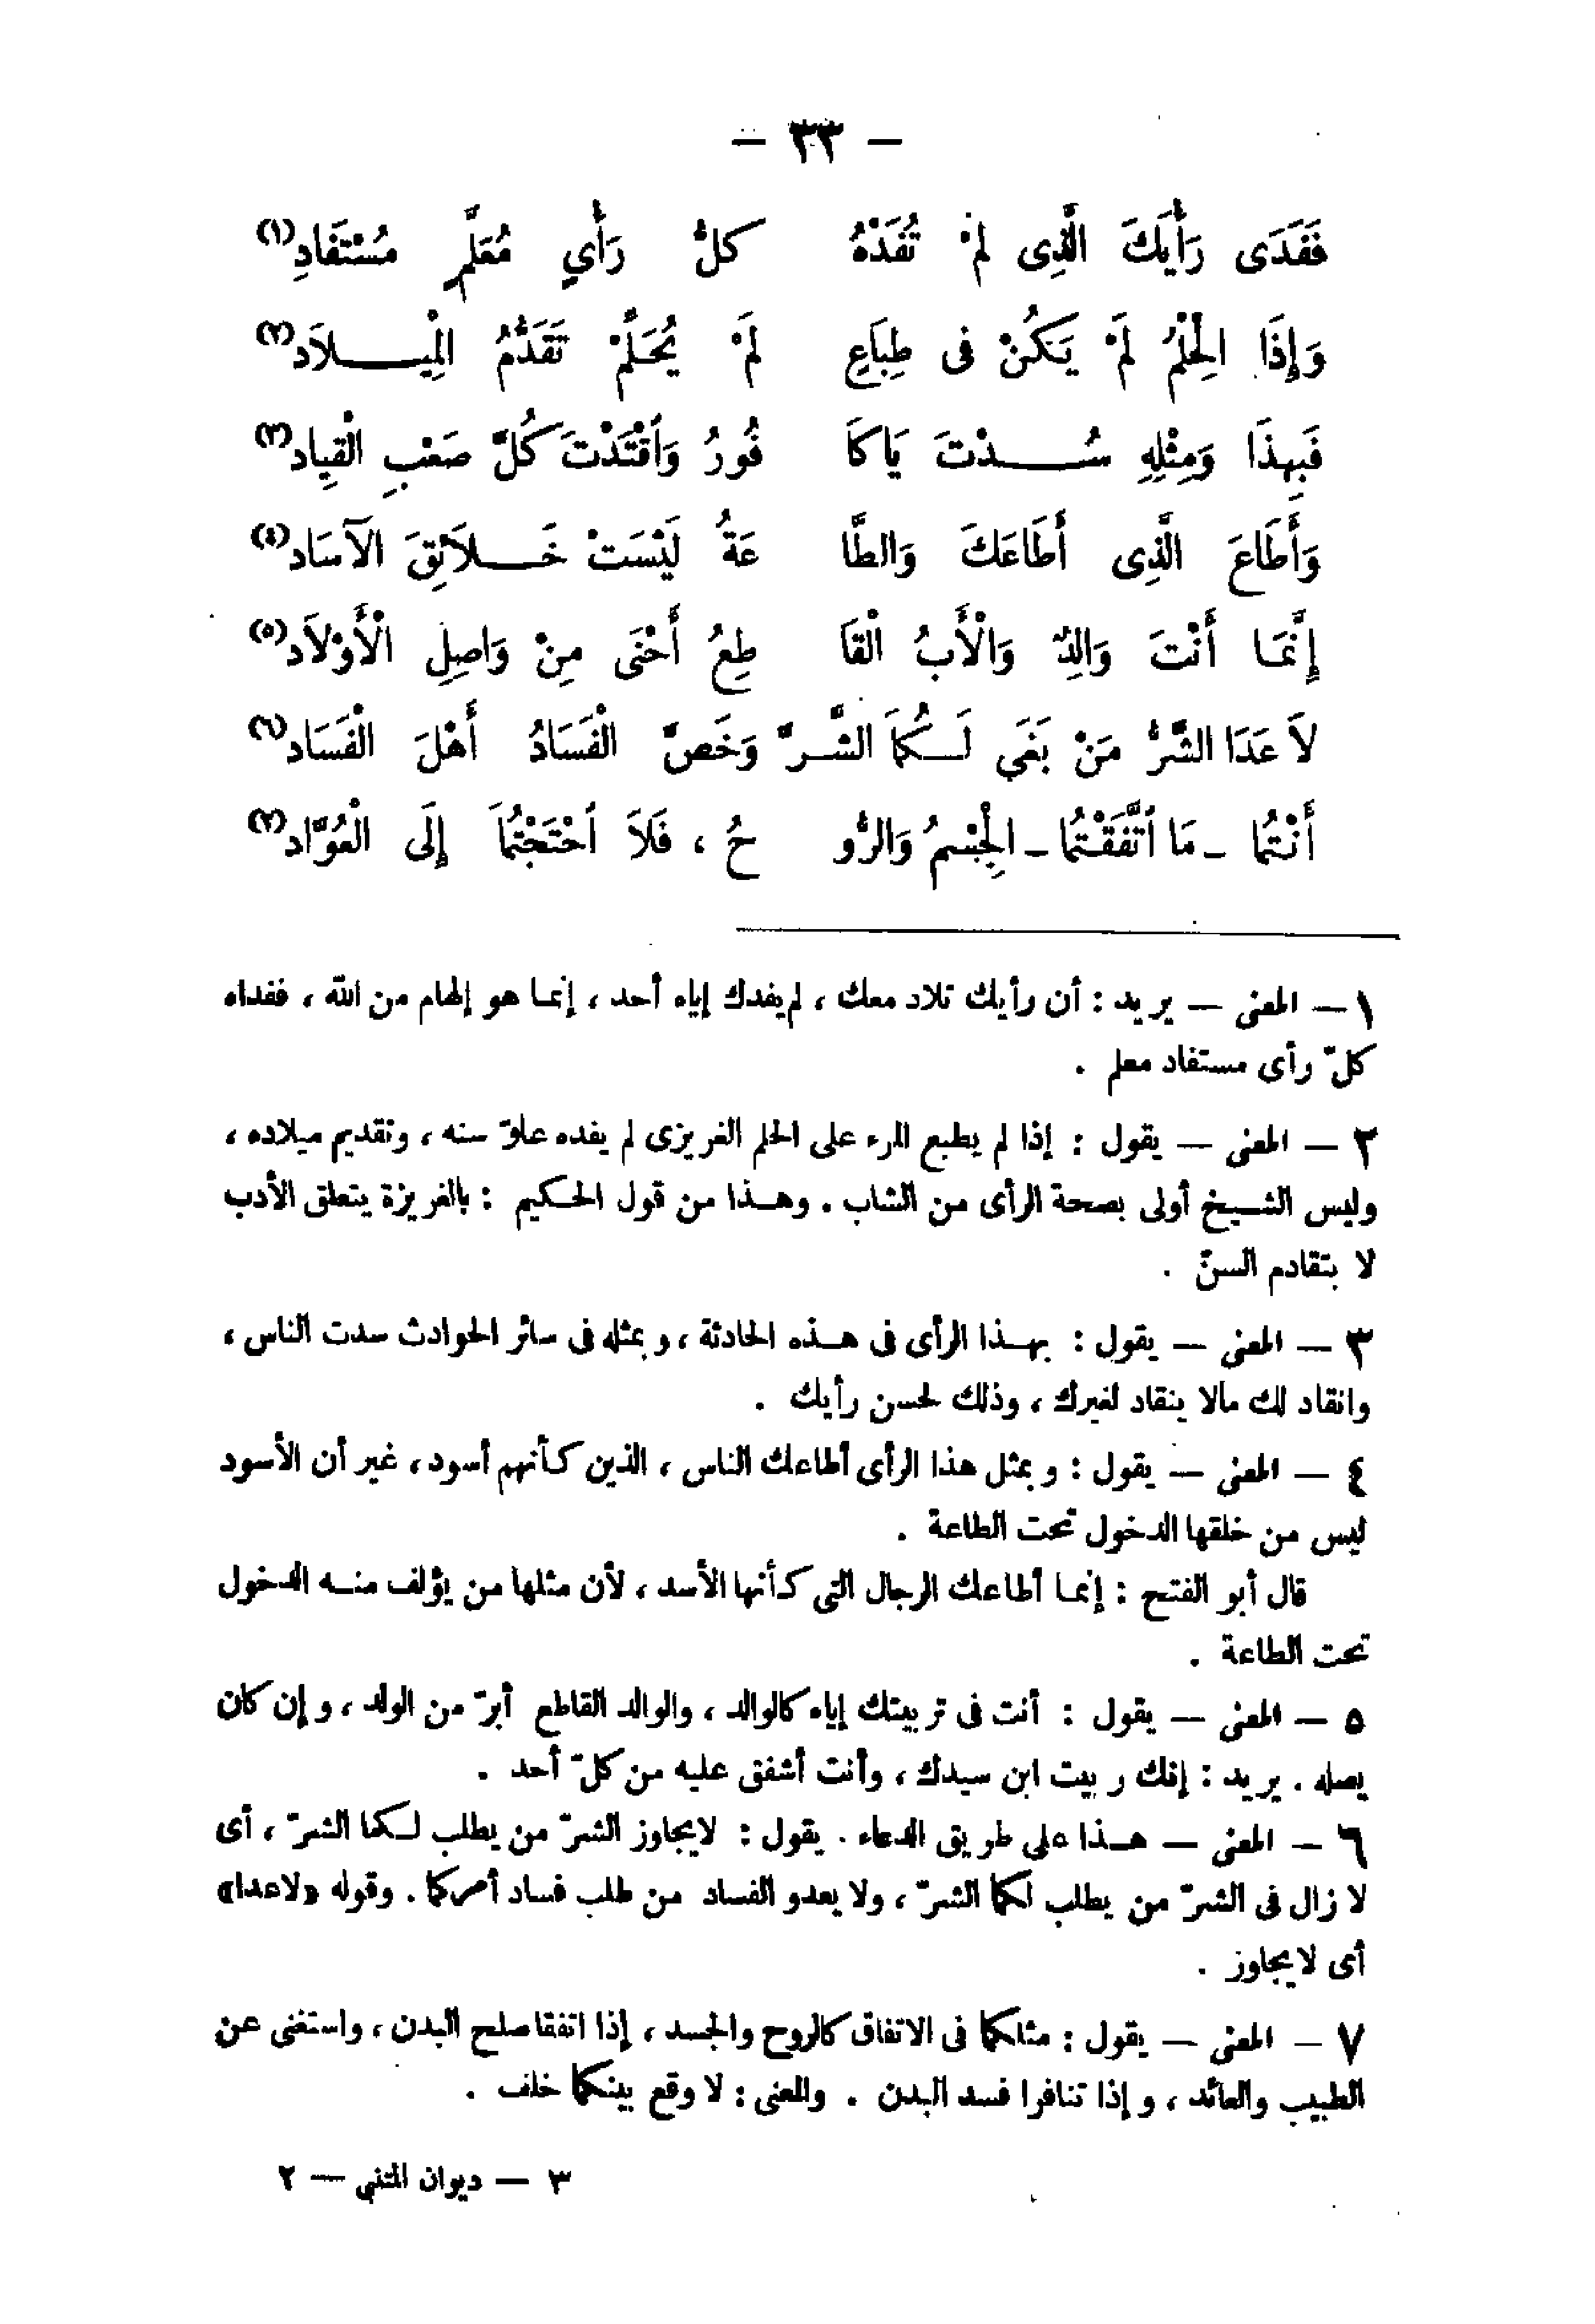 — ٣٣ —
فَفَدَى رَأْيَكَ الَّذِى لَمْ تُفَدْهُ كلُّ رَأْيٍ مُعَلَّمٍ مُسْتَفَادِ(١)
وَإِذَا الْحِلْمُ لَمْ يَكُنْ فى طِبَاعٍ لَمْ يُحَلِّمْ تَقَدُّمُ الْمِيلَادِ(٢)
فَبِهذَا وَمِثْلِهِ سُدْتَ يَا كَا فُورُ وَاقْتَدْتَ كُلَّ صَعْبِ الْقِيادِ(٣)
وَأَطَاعَ الَّذِى أَطَاعَكَ وَالطَّا عَةُ لَيْسَتْ خَلَائِقَ الْآسَادِ(٤)
إِنَّمَا أَنْتَ وَالِدٌ وَالْأَبُ الْقَا طِعُ أَحْنَى مِنْ وَاصِلِ الْأَوْلَادِ(٥)
لَا عَدَا الشَّرُّ مَنْ بَغَى لَكُمَا الشَّرَّ وَخَصَّ الْفَسَادُ أَهْلَ الْفَسَادِ(٦)
أَنْتُمَا ـ مَا اتَّفَقْتُمَا ـ الْجِسْمُ وَالرُّو حُ ، فَلَا احْتَجْتُمَا إِلَى الْعُوَّادِ(٧)
١ — المعنى — يريد : أن رأيك تلاد معك ، لم يفدك إياه أحد ، إنما هو إلهام من الله ، ففداه
كلّ رأى مستفاد معلم .
٢ — المعنى — يقول : إذا لم يطبع المرء على الحلم الغريزى لم يفده علوّ سنه ، وتقديم ميلاده ،
وليس الشيخ أولى بصحة الرأى من الشاب . وهذا من قول الحكيم : بالغريزة يتعلق الأدب
لا بتقادم السنّ .
٣ — المعنى — يقول : بهذا الرأى فى هذه الحادثة ، وبمثله فى سائر الحوادث سدت الناس ،
وانقاد لك مالا ينقاد لغيرك ، وذلك لحسن رأيك .
٤ — المعنى — يقول : وبمثل هذا الرأى أطاعك الناس ، الذين كأنهم أسود ، غير أن الأسود
ليس من خلقها الدخول تحت الطاعة .
قال أبو الفتح : إنما أطاعك الرجال التى كأنها الأسد ، لأن مثلها من يؤلف منه الدخول
تحت الطاعة .
٥ — المعنى — يقول : أنت فى تربيتك إياه كالوالد ، والوالد القاطع أبرّ من الولد ، وإن كان
يصله . يريد : إنك ربيت ابن سيدك ، وأنت أشفق عليه من كلّ أحد .
٦ — المعنى — هذا على طريق الدعاء . يقول : لا يجاوز الشرّ من يطلب لكما الشرّ ، أى
لا زال فى الشرّ من يطلب لكما الشرّ ، ولا يعدو الفساد من طلب فساد أمركما . وقوله «لاعدا»
أى لا يجاوز .
٧ — المعنى — يقول : مثلكما فى الاتفاق كالروح والجسد ، إذا اتفقا صلح البدن ، واستغنى عن
الطبيب والعائد ، وإذا تنافرا فسد البدن . والمعنى : لا وقع بينكما خلف .
٣ — ديوان المتنبي — ٢